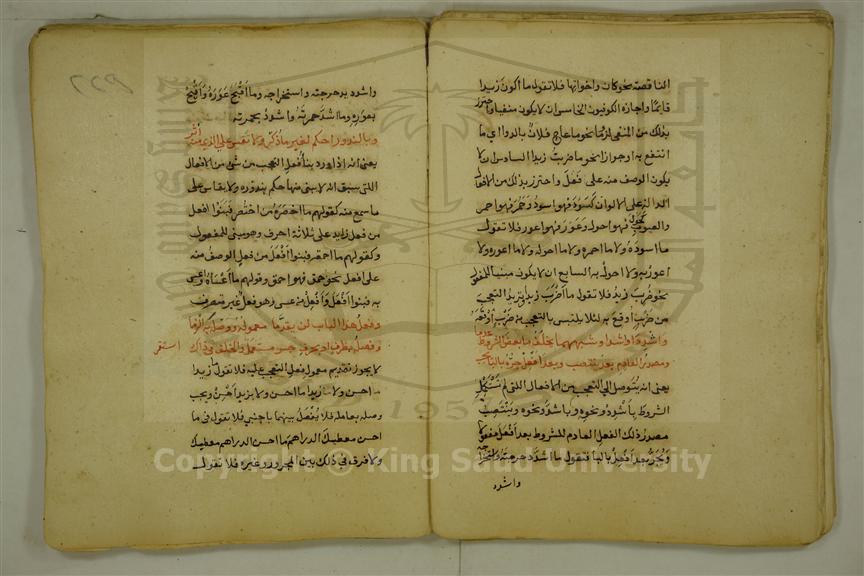 الناقصة نحو كان واخواتها فلا تقول ما أكون زيدا
قايمًا واجازه الكوفيون الخامس ان لا يكون منفيا واحترز
بذلك من المنفي لزومًا نحو ما عاج فلانٌ بالدوا اي ما
انتفع به او جوازًا نحو ما ضربتُ زيدا السادس ان لا
يكون الوصف منه على افعل واحترز بذلك من الافعال
الدالة على الالوان كسَوِدَ فهو اسود وحَمِرَ فهو احمر
والعيوب كحَوِلَ فهو احول وعَوِرَ فهو اعور فلا تقول
ما اسوده ولا ما احمره ولا ما احوله ولا ما اعوره ولا
اعور به ولا احول به السابع ان لا يكون مبنيا للمفعول
نحو ضُرِبَ زيدٌ فلا تقول ما أضربَ زيدا تريد التعجب
من ضربٍ أُوقع به لئلا يلتبس بالتعجب من ضربٍ أوقعه
واشدد او اشد او شبههما يخلف ما بعض الشروط عدما
ومصدر العادم بعد ينتصب وبعد افعل جره بالبا يجب
يعني انه يتوصل الي التعجب من الافعال التي لم تستكمل
الشروط باشدد ونحوه وباشد ونحوه وينتصب
مصدر ذلك الفعل العادم للشروط بعد افعل مفعولا
ويُجر بعد أفعل بالبا فتقول ما اشد دحرجته واستخراجه
واشدد
واشدد بدحرجته واستخراجه وما اقبح عوره وأقبح
بعوره وما اشد حمرته واشدد بحمرته
وبالندور احكم لغير ما ذكر ولا تقس علي الذي منه أثر
يعني انه اذا ورد بنا أفعل التعجب من شي من الافعال
التي سبق انه لا يبني منها حكم بندوره ولا يقاس على
ما سمع منه كقولهم ما اخصره من اختصر فبنوا افعل
من فعل زايد على ثلاثة احرف وهو مبني للمفعول
وكقولهم ما احمقه فبنوا أفعل من فعل الوصف منه
على افعل نحو حمق فهو احمق وقولهم ما أعساه وأعس
به فبنوا أفعل وأفعل من عسى وهو فعل غير متصرف
وفعل هذا الباب لن يقدما معموله ووصله به الزما
وفصله بظرف او بحرف جر مستعمل والخلف في ذلك استقر
لا يجوز تقديم معمول فعل التعجب عليه فلا تقول زيدا
ما احسن ولا ما زيدا احسن ولا بزيد أحسن ويجب
وصله بعامله فلا يفصل بينهما باجنبي فلا تقول في ما
احسن معطيك الدراهم ما احسن الدراهم معطيك
ولا فرق في ذلك بين المجرور وغيره فلا تقول
Copyright © King Saud University
195